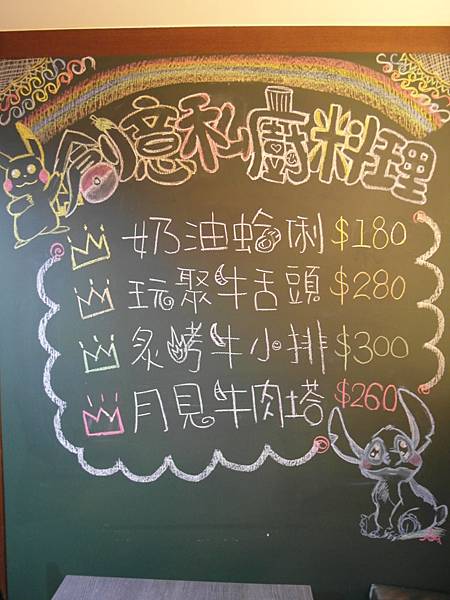 創意私廚料理
奶油蛤俐 $180
玩聚牛舌頭 $280
炙烤牛小排 $300
月見牛肉塔 $260